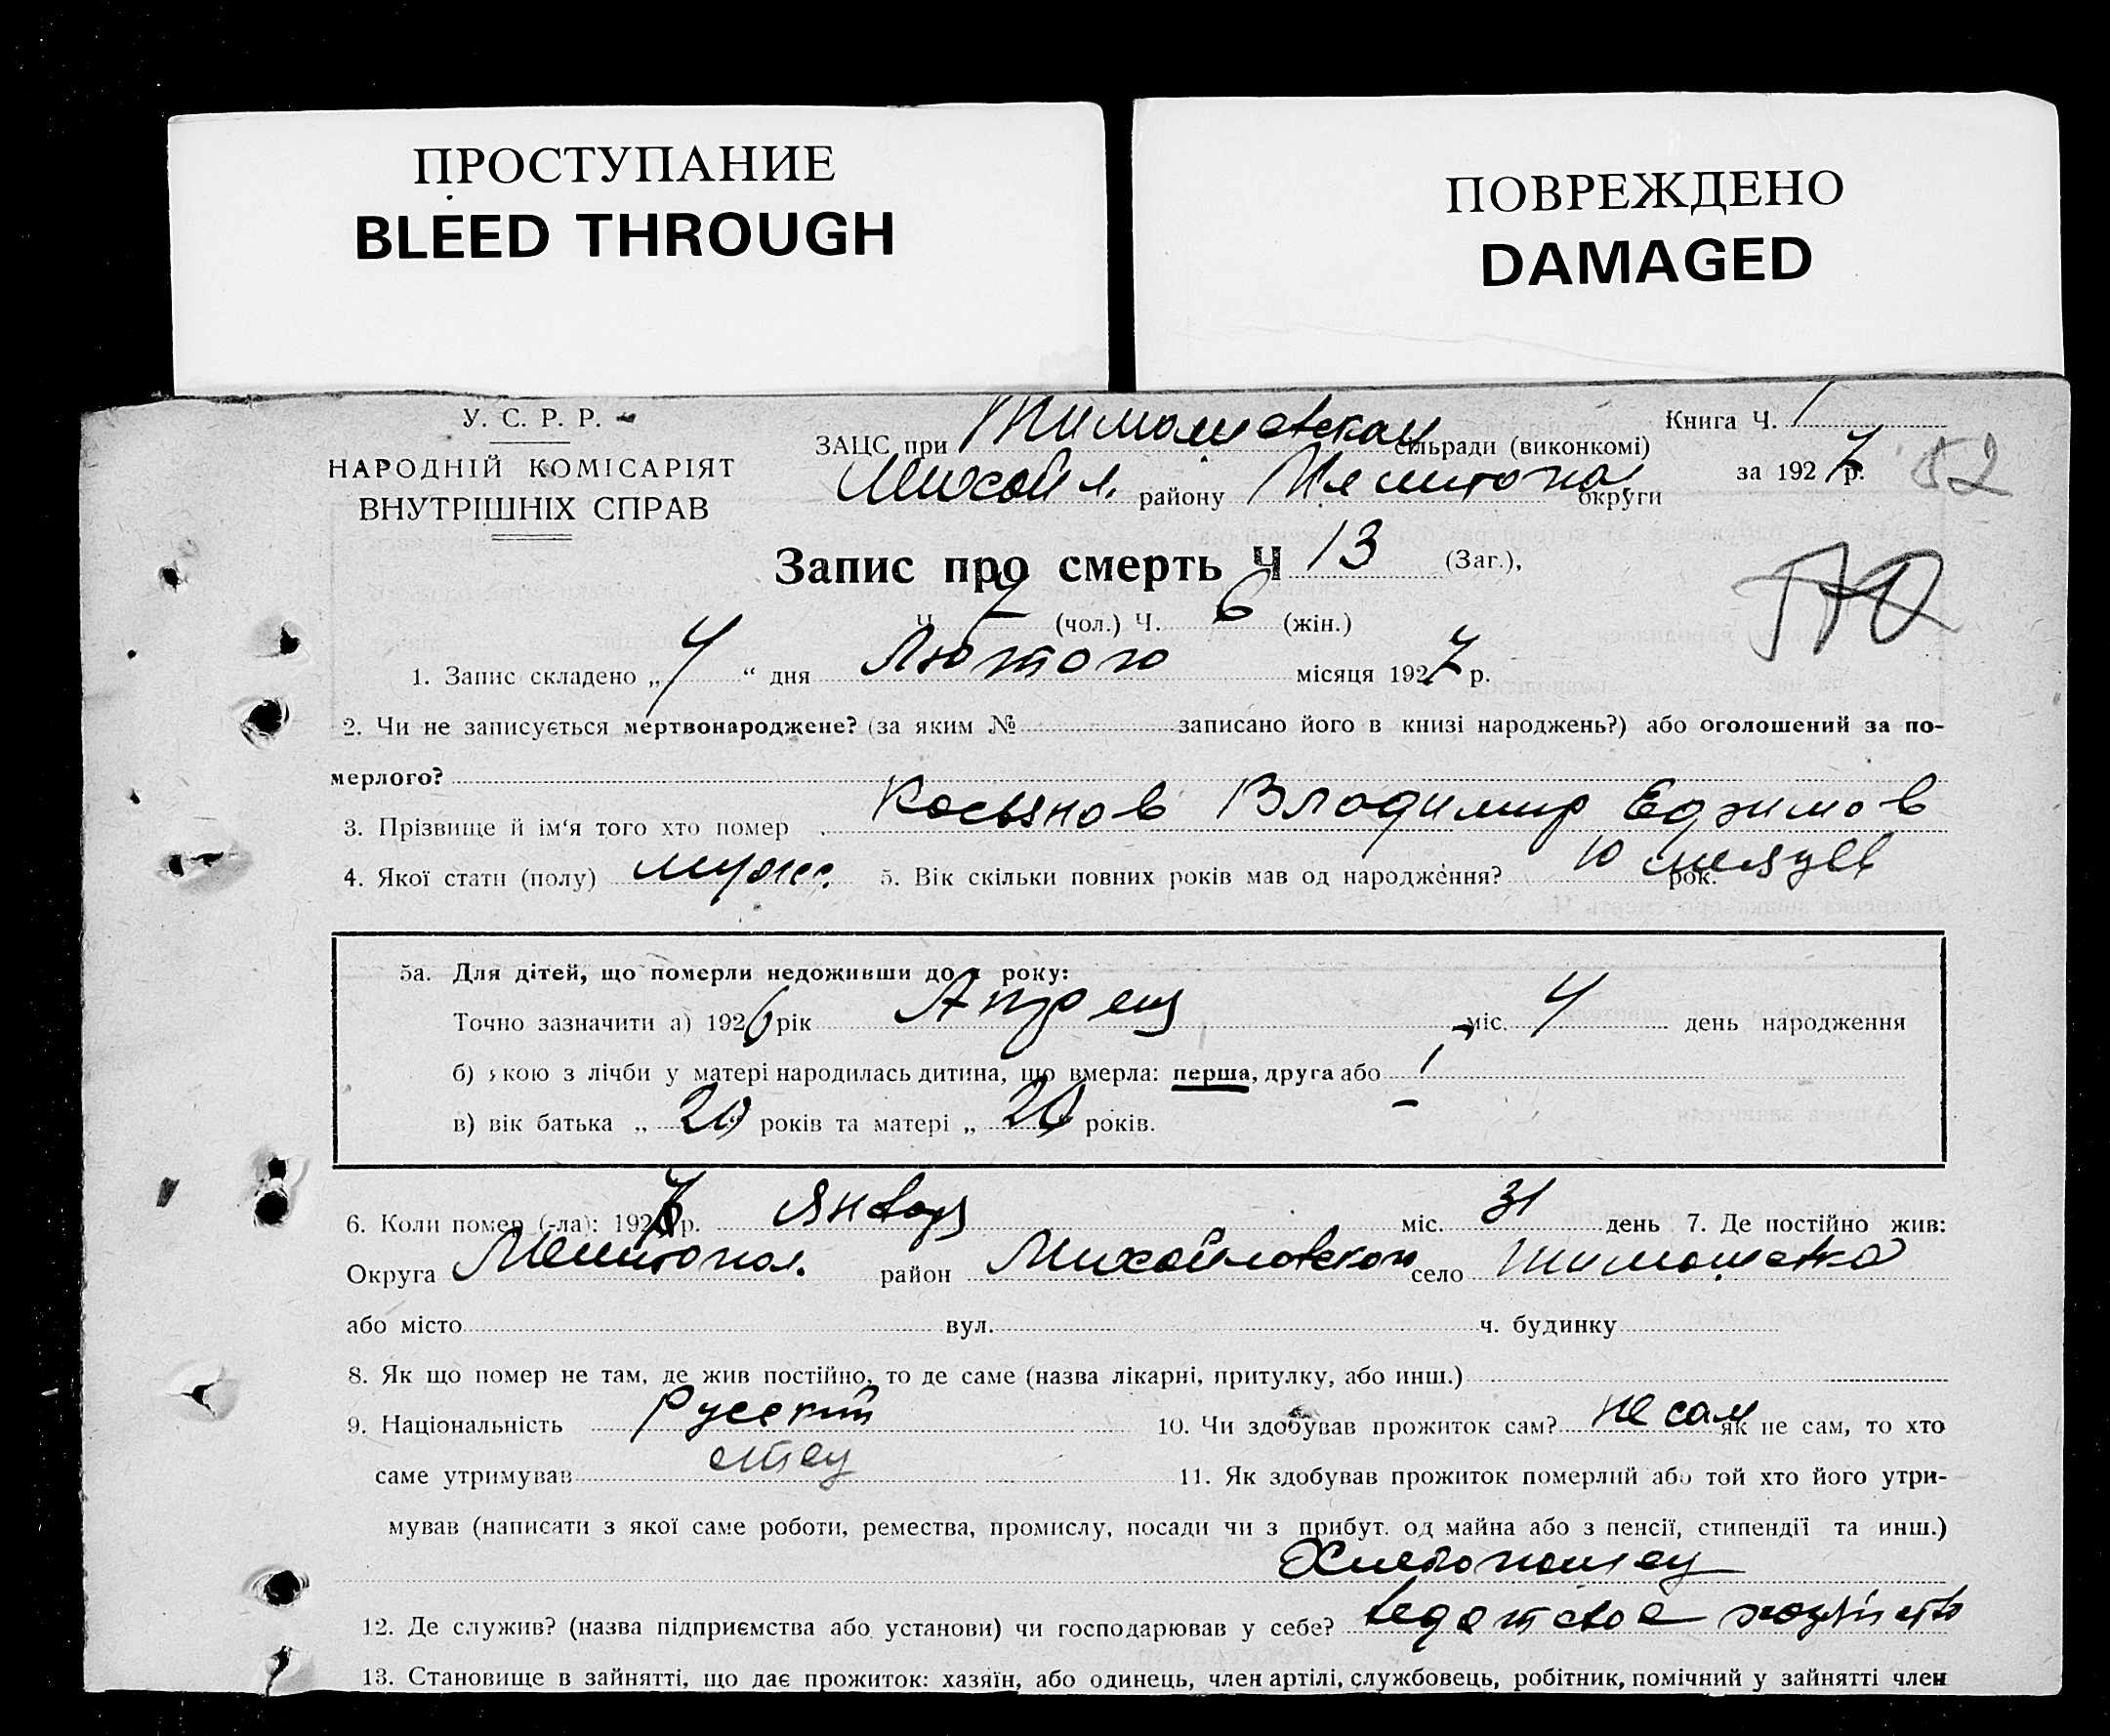 ПРОСТУПАНИЕ
BLEED THROUGH
ПОВРЕЖДЕНО
DAMAGED
У. С. Р. Р.
НАРОДНІЙ КОМІСАРІЯТ
ВНУТРІШНІХ СПРАВ
ЗАЦС при Тимошевской сільради (виконкомі)
Михайл. району Мелитопол округи
Книга Ч. 1
за 1927 р. 52
Запис про смерть Ч 13 (Заг.),
Ч 7 (чол.) Ч. 6 (жін.)
1. Запис складено „ 4 “ дня Лютого місяця 1927 р.
2. Чи не записується мертвонароджене? (за яким № записано його в книзі народжень?) або оголошений за по-
мерлого?
3. Прізвище й ім‘я того хто помер Косьянов Владимир Ефимов
4. Якої стати (полу) мужс. 5. Вік скільки повних років мав од народження? 10 рок.
5а. Для дітей, що померли недоживши до 1 року:
Точно зазначити а) 1926 рік Апрель міс. 4 день народження
б) якою з лічби у матері народилась дитина, що вмерла: перша, друга або 1
в) вік батька „ 20 років та матері „ 20 років.
6. Коли помер (-ла): 1927 р. Январ міс. 31 день 7. Де постійно жив:
Округа Мелитопол. район Михайловском село Тимошевка
або місто вул. ч. будинку
8. Як що помер не там, де жив постійно, то де саме (назва лікарні, притулку, або инш.)
9. Національність Русский 10. Чи здобував прожиток сам? не сам як не сам, то хто
саме утримував отец 11. Як здобував прожиток померлий або той хто його утри-
мував (написати з якої саме роботи, ремества, промислу, посади чи з прибут. од майна або з пенсії, стипендії та инш.)
Хлебопашец
12. Де служив? (назва підприємства або установи) чи господарював у себе?
13. Становище в зайнятті, що дає прожиток: хазяїн, або одинець, член артілі, службовець, робітник, помічний у зайнятті член